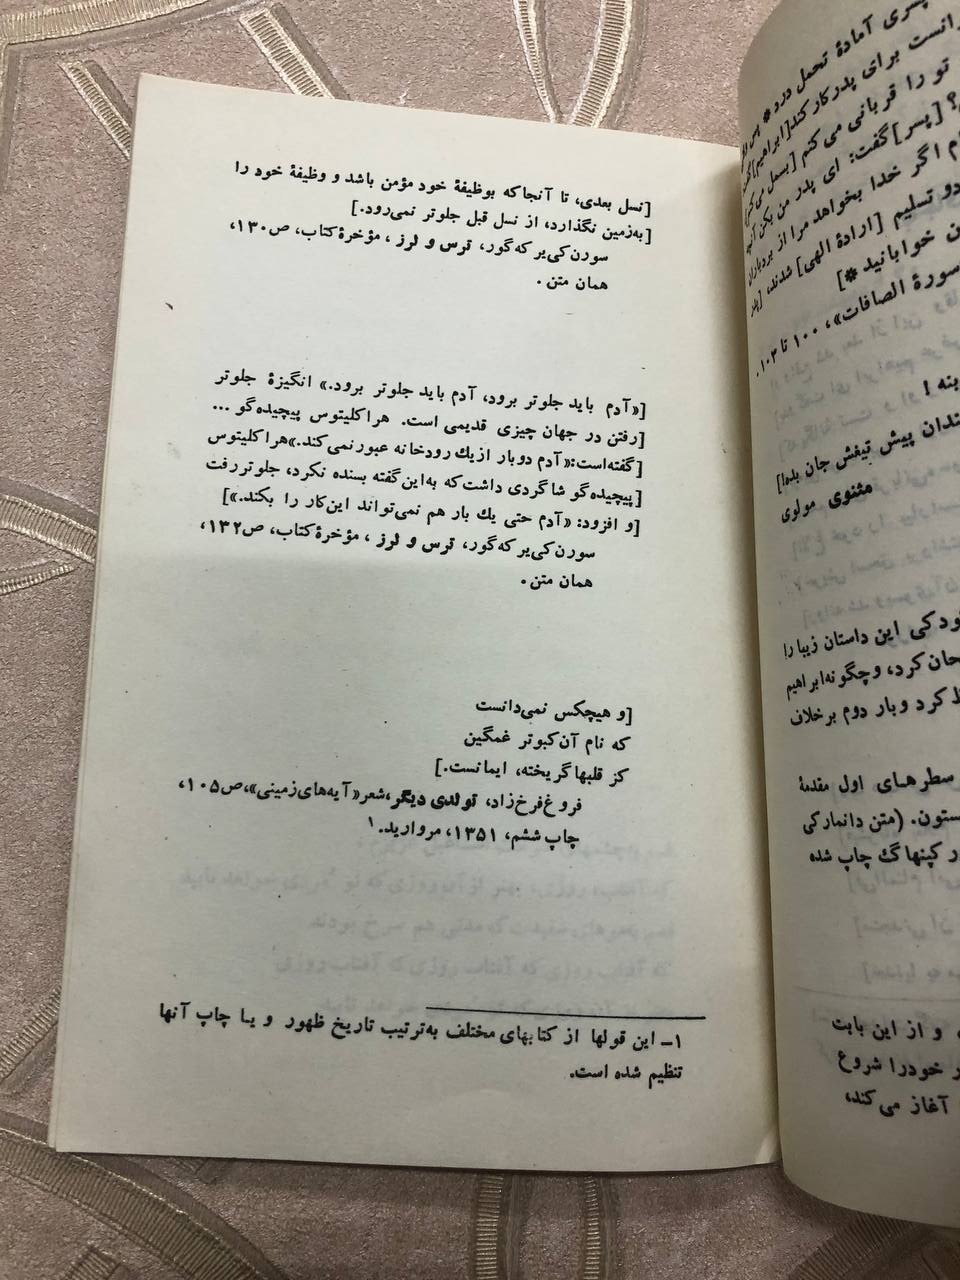 [نسل بعدی، تا آنجا که بوظیفهٔ خود مؤمن باشد و وظیفهٔ خود را
[به‌زمین نگذارد، از نسل قبل جلوتر نمی‌رود.]
سورن کی‌یر که‌گور، ترس و لرز، مؤخرهٔ کتاب، ص۱۳۰،
همان متن.
[«آدم باید جلوتر برود، آدم باید جلوتر برود.» انگیزهٔ جلوتر
[رفتن در جهان چیزی قدیمی است. هراکلیتوس پیچیده‌گو ...
[گفته‌است: «آدم دوبار از یك رودخانه عبور نمی‌کند.» هراکلیتوس
[پیچیده‌گو شاگردی داشت که به‌این گفته بسنده نکرد، جلوتر رفت
[و افزود: «آدم حتی یك بار هم نمی‌تواند این‌کار را بکند.»]
سورن کی‌یر که‌گور، ترس و لرز، مؤخرهٔ کتاب، ص۱۳۲،
همان متن.
[و هیچکس نمی‌دانست
که نام آن کبوتر غمگین
کز قلبها گریخته، ایمانست.]
فروغ فرخ‌زاد، تولدی دیگر، شعر «آیه‌های زمینی»، ص۱۰۵،
چاپ ششم، ۱۳۵۱، مروارید.۱
۱ــ این قولها از کتابهای مختلف به‌ترتیب تاریخ ظهور و یا چاپ آنها
تنظیم شده است.
پسری آمادهٔ تحمل درد * پس
انست برای پدر کار کند [ابراهیم]
تو را قربانی می‌کنم [بسمل می‌کنم]
؟ [پسر] گفت: ای پدر من بکن آنچه
م اگر خدا بخواهد مرا از بردباران
دو تسلیم [ارادهٔ الهی] شدند،
ن خوابانید *]
سورهٔ الصافات»، ۱۰۰ تا ۱۰۳.
بنه !
تندان پیش تیغش جان بده!]
مثنوی مولوی
ودکی این داستان زیبا را
حان کرد، و چگونه ابراهیم
کرد و بار دوم برخلاف
سطرهای اول مقدمهٔ
ستون. (متن دانمارکی
ر کپنهاگ چاپ شده
و از این بابت
ر خود را شروع
آغاز می‌کند،